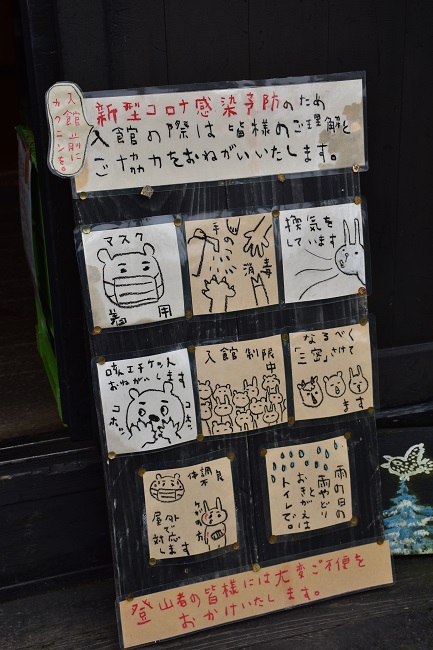 入館前に
カクニンを。
新型コロナ感染予防のため
入館の際は皆様のご理解と
ご協力をおねがいいたします。
マスク
着用
手の
消毒
換気を
しています
咳エチケット
おねがいします
コホッ
コホッ
入館制限
中
なるべく
「三密」さけて
ます
体調
不良
の方
屋外
で対応
します
雨の日の
雨やどり
と
おきがえは
トイレで。
登山者の皆様には大変ご不便を
おかけいたします。